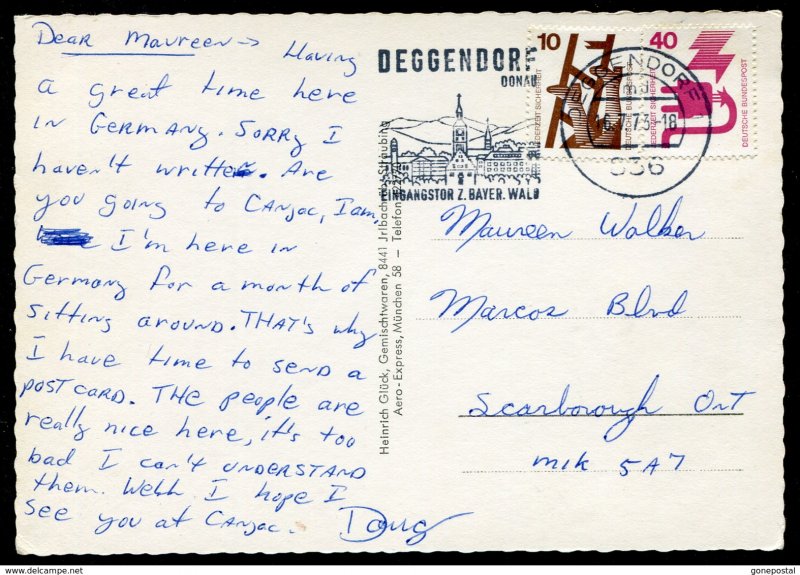 Dear Maureen → Having
a great time here
in Germany. Sorry I
haven't written. Are
you going to Canjac, I am,
I'm here in
Germany for a month of
sitting around. THAT's why
I have time to send a
post card. The people are
really nice here, it's too
bad I can't understand
them. Well I hope I
see you at Canjac. Doug
DEGGENDORF
DONAU
EINGANGSTOR Z. BAYER. WALD
10
JEDERZEIT SICHERHEIT
DEUTSCHE BUNDESPOST
40
JEDERZEIT SICHERHEIT
DEUTSCHE BUNDESPOST
DEGGENDORF
836
Heinrich Glück, Gemischtwaren, 8441 Irlbach
Straubing
Aero-Express, München 58 — Telefon
Maureen Walker
Marcos Blvd
Scarborough Ont
M1K 5A7
delcampe.net
gonepostal